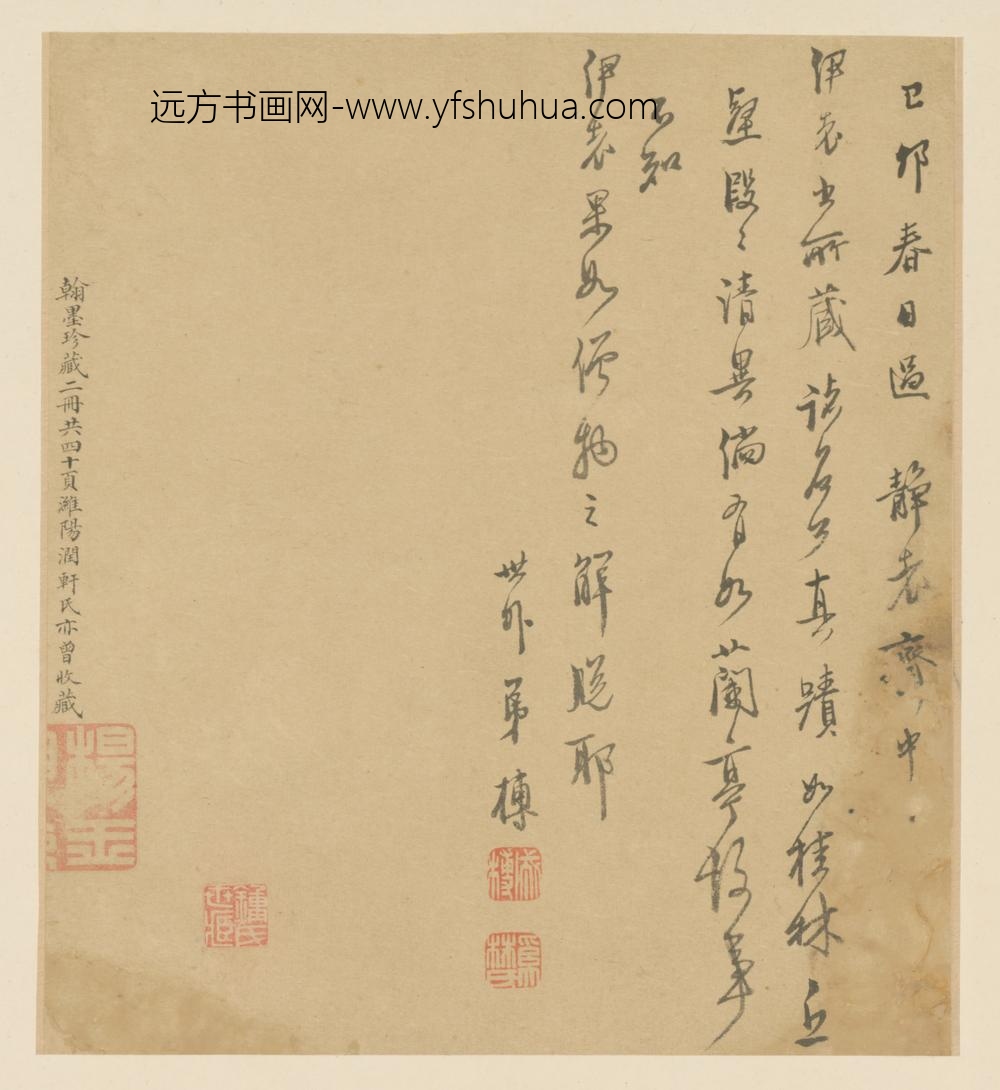 远方书画网-www.yfshuhua.com
己卯春日過 靜老齋中
伊老出所藏諸名公真蹟如桂林丘
壑段〻清異倘有如蘭亭故事
不知
伊老果如僧物之解脫耶
世外弟榑
翰墨珍藏二冊共四十頁濰陽潤軒氏亦曾收藏